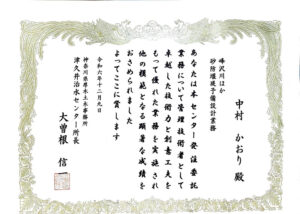 峰沢川ほか
砂防堰堤予備設計業務
中村 かおり 殿
あなたは本センター発注委託
業務について管理技術者として
卓越した技術力と創意工夫を
もって優れた業務を実施され
他の模範となる顕著な成績を
おさめられました
よってここに賞します
令和六年十二月九日
神奈川県厚木土木事務所
津久井治水センター所長
大曽根 信